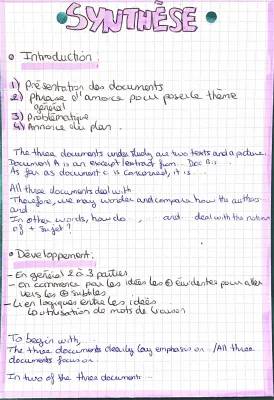 SYNTHÈSE
Introduction:
1) Présentation des documents
2) Phrase d'annonce pour poser le thème
général
3) Problématique
4) Annonce du plan.
The three documents under study are two texts and a picture.
Document A is an excerpt/extract from... Doc B is...
As far as document C is concerned, it is...
All three documents deal with
Therefore, we may wonder and compare how the authors
and
In other words, how do , and deal with the notion
of + sujet?
Développement:
- En général 2 à 3 parties
- on commence par les idées les ⊕ évidentes pour aller
vers les ⊕ subtiles
- Lien logiques entre les idées
↳ utilisation de mots de liaisons
To begin with,...
The three documents clearly lay emphasis on /All three
documents focus on
In two of the three document...